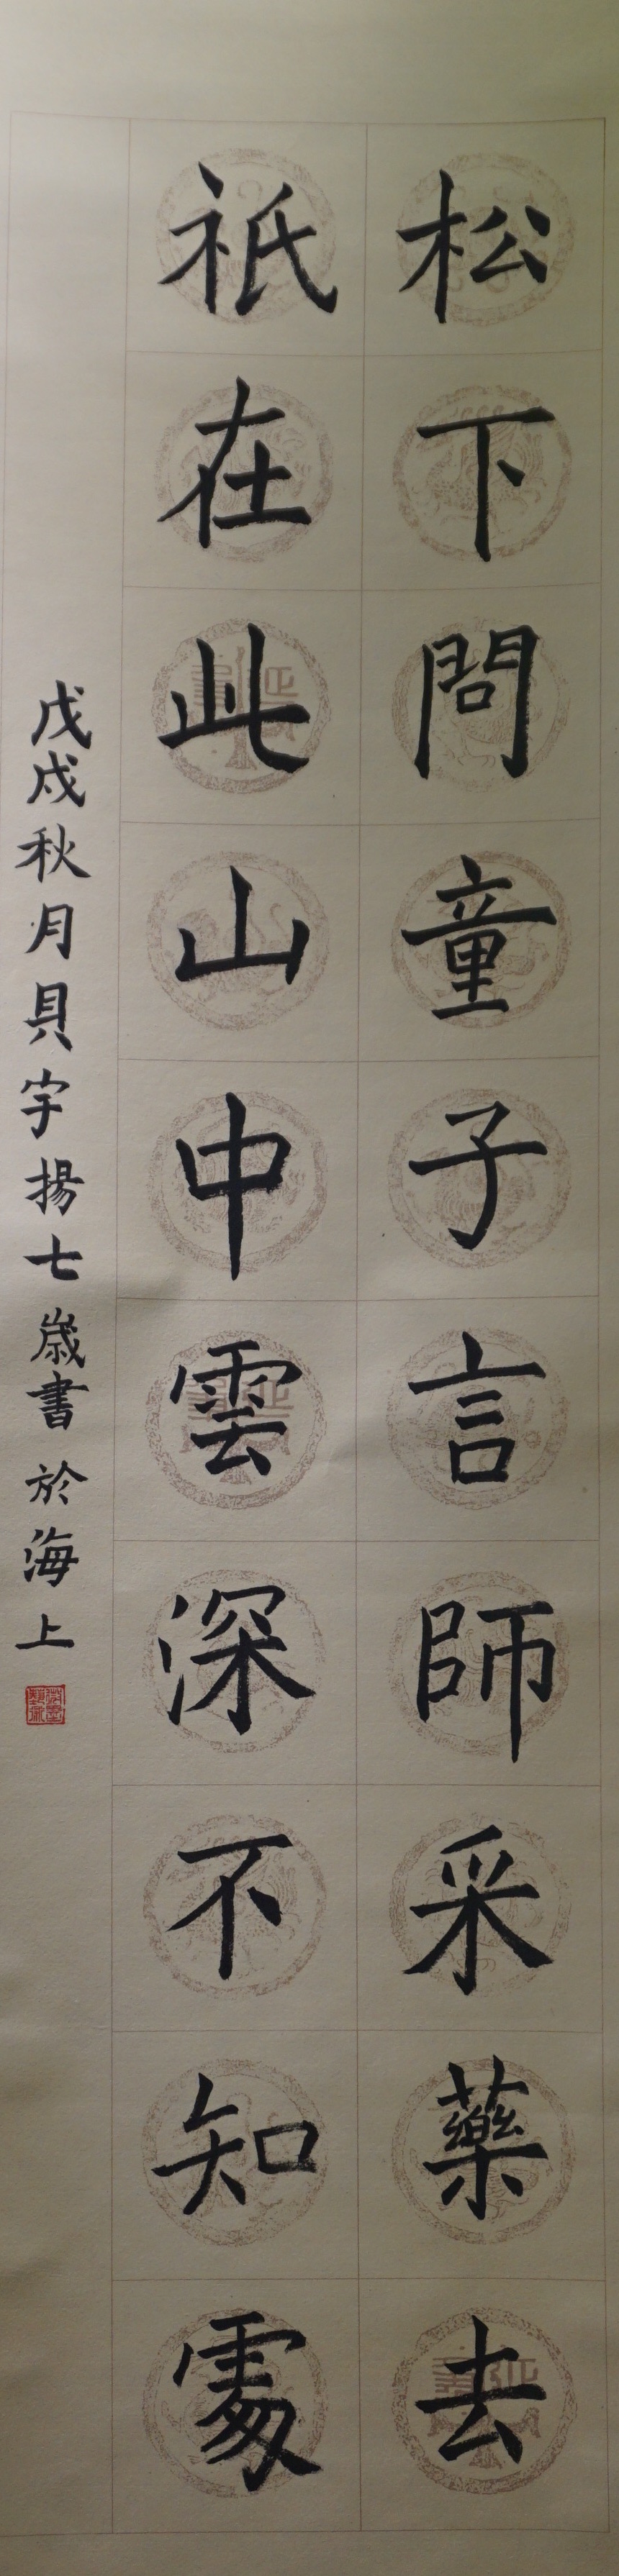 松下問童子言師采藥去
祇在此山中雲深不知處
戊戌秋月貝宇揚七歲書於海上